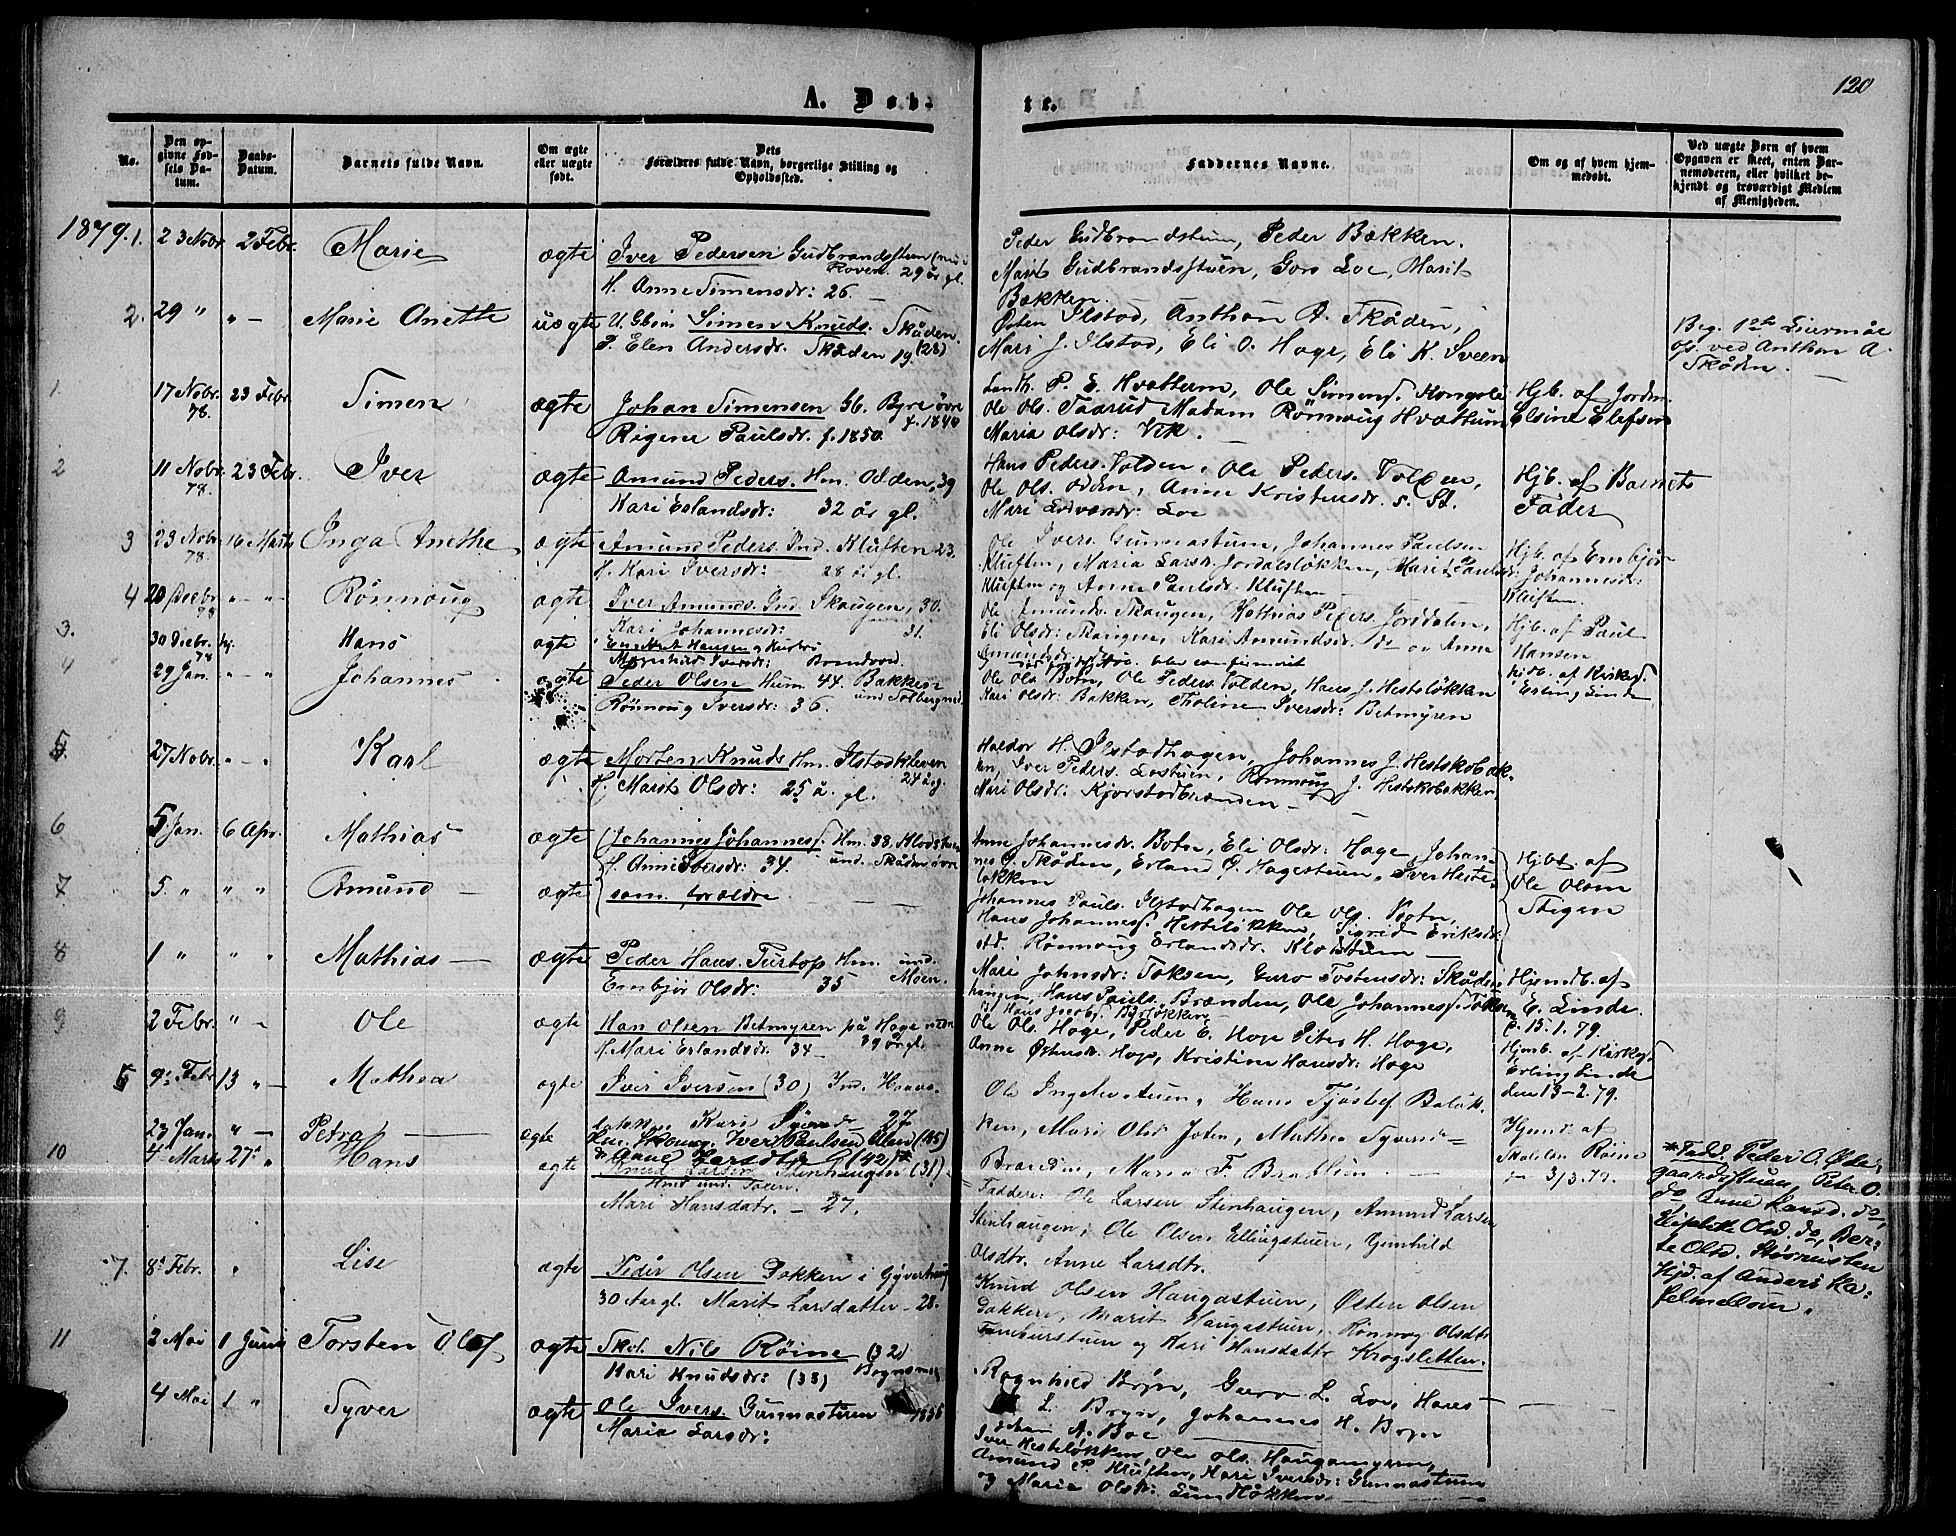 120
A. Døb-
te.
No.
Den op-
givne Fød-
sels Da-
tum.
Daabs-
Datum.
Barnets fulde Navn.
Om ægte
eller uægte
født.
Dets
Forældres fulde Navn, borgerlige Stilling og
Opholdssted.
Faddernes Navne.
Om og af hvem hjem-
medøbt.
Ved uægte Børn af hvem
Opgaven er skeet, enten Bar-
nemoderen, eller hvilket be-
kjendt og troværdigt Medlem
af Menigheden.
1879. 1. 23 Nobr. 2 Febr. Marie ægte Iver Pedersen Gudbrandsstuen
29 år gl.
H. Anne Simensdr: 26. —
Peder Gudbrandstuen, Peder Bækken.
Marit Gudbrandsstuen, Goro Loe, Marit
Bækken.
2. 29 " " — Marie Anette uægte Simen Knuds. Skåden.
P. Elen Andersdr. Skåden 19. (28)
Østen Ilstad, Anthon A. Skåden,
Mari J. Ilstad, Eli O. Hage, Eli K. Sveen
ved Anthon A.
Skåden. —
1. 17 Nobr. 78. 23 Febr. Simen ægte Johan Simensen Gb. Byre øvre
f. 1840
Rigene Paulsdr. f. 1850.
P. E. Hvattum, Ole Simens. Kongsli
Ole Ols. Taarud Madam Rönnoug Hvattum
Maria Olsdr: Vik.
Hjb. af Jordm.
Elsine Elefsen
2 11 Nobr. 78. 23 Febr. Iver ægte Amund Peders. Hm. Odden, 39
Kari Erlandsdr: 32 år gl.
Hans Peders. Volden, Ole Peders. Volden,
Ole Ols. Odden, Anne Kristensdr. s. St.
Mari Loe
Hjb. af Barnets
Fader
3 23 Nobr. 78. 16 Marts Inga Anethe ægte Amund Peders. Ind. Kluften 23.
H. Kari Iversdr: 28 år gl.
Ole Ivers. Gunnastuen, Johannes Paulsen
Kluften, Maria Larsdr. Jordalsløkken, Marit Paulsdr.
Kluften og Anne Paulsdr. Kluften
Hjb. af Embjør
Johannesdr:
Kluften.
4 20 Decbr. 78 " " Rönnoug ægte Iver Amunds. Ind. Skaugen, 30.
Kari Johannesdr: 31.
Ole Amunds. Skaugen, Mathias Peders. Jordalen,
Eli Olsdr: Skaugen, Kari Amundsdr. do og Anne
Amundsdr. do
Hjb. af Paul
Hansen
3. 30 Decbr. 78 Hans ægte Engebret Hansen og Hustru
Iversdr: Brandvold.
4 29 Jan. " " Johannes ægte Peder Olsen Husm. 44. Bakken
und Solbergmo.
Rönnoug Iversdr: 36.
Ole Ols Botn, Ole Peders. Volden, Hans J. Hestløkken
Mari Olsdr: Bakken, Tholine Iversdr: Betmyren
Hjdb. af Kirkes.
Erling Linde
5. 27 Nobr. " " Karl ægte Morten Knuds Hm. Ilstadkleven
24 å. g.
H. Marit Olsdr: 25 å. gl.
Haldor H. Ilstadhagen, Johannes J. Hestskobak-
ken, Iver Peders. Lostuen, Rönnoug J. Hestskobakken,
Mari Olsdr: Kjorstadbrænden —
6 5 Jan. 6 Apr. Mathias ægte Johannes Johannes. Hm. 33, Klodstuen
und. Skåden øvre
H. Anne Iversdr: 34.
Anne Johannesdr. Botn, Eli Olsdr: Hage, Johan-
nes O. Skåden, Erland O. Hagestuen, Iver Hests-
løkken
Hjbt. af
Ole Olsen
Stigen
7 5 " " " Amund — ægte som forældre
Johannes Pauls. Ilstadhagen Ole Ols. Botn,
Hans Johannes. Hestsløkken, Sigrid Eriksdr.
Rönnoug Erlandsdr. Klodstuen
8 1 " " " Mathias — ægte Peder Hans. Turtop Hm. und.
Moen.
Embjør Olsdr: 35
Mari Johnsdr: Toksen, Guro Tostensdr: Skåde-
haugen, Hans Pauls. Brænden, Ole Johannes. Toksen
Hjemdb. af
E. Linde
d. 15. 1. 79.
9 2 Febr. " — Ole ægte Han Olsen Betmyren på Hage nedre
39 år gl.
H. Mari Erlandsdr. 34 —
Ole Ols. Hage, Peder E. Hage Peter H. Hage,
Anne Østensdr. Hage, Kristine Hansdr: Hage
Hjmb. af Kirkes.
Erling Linde
den 13 - 2. 79.
5 9. Febr 13 " — Mathea ægte Iver Iversen (30) Ind.
Kari 27
Ole Ingelsstuen, Hans
ken, Mari Olsd
23 Jan. " — Petra — ægte Iver Paulsen (45)
Anne Larsdtr (42)*
Hjemd af
Røine
3/3. 79.
10 4. Marts 27. " Hans ægte Knud Larsen Stenhaugen (31)
Mari Hansdatr. — 27.
Faddere: Ole Larsen Stenhaugen, Amund Larsen
Stenhaugen, Ole Olsen Ellingstuen, Gunhild
Olsdtr. Anne Larsdtr.
*Fadd. Peder O. Øste-
gaardsstuen, Peter O.
do Anne Larsd. do,
Elisabette Olsd. do, Ber-
te Olsd.
Hjd. af Anders
7. 8. Febr. " Lise ægte Peder Olsen Dokken i
30 Aar gl. Marit Larsdatter — 28.
Knud Olsen Haugastuen, Østen Olsen
Dokken, Marit Haugastuen, Rönnog Olsdtr.
og Kari Hansdattr Krogsletten.
11 2 Mai 1 Juni Torsten Olaf ægte Skol. Nils Røine (32)
Kari Knudsdr: (33)
Ragnhild Brøn, Guro L. Loe, Hans
L. Johannes H.
A. Boe
4 Mai 1 " Syver ægte Ole Ivers. Gunnastuen
Maria Larsdr:
Iver Hestsløkken, Ole Ols. Haugamyren,
Amund P. Kluften, Mari Iversdr: Gunnastuen
og Marie Olsdr: Lundløkken